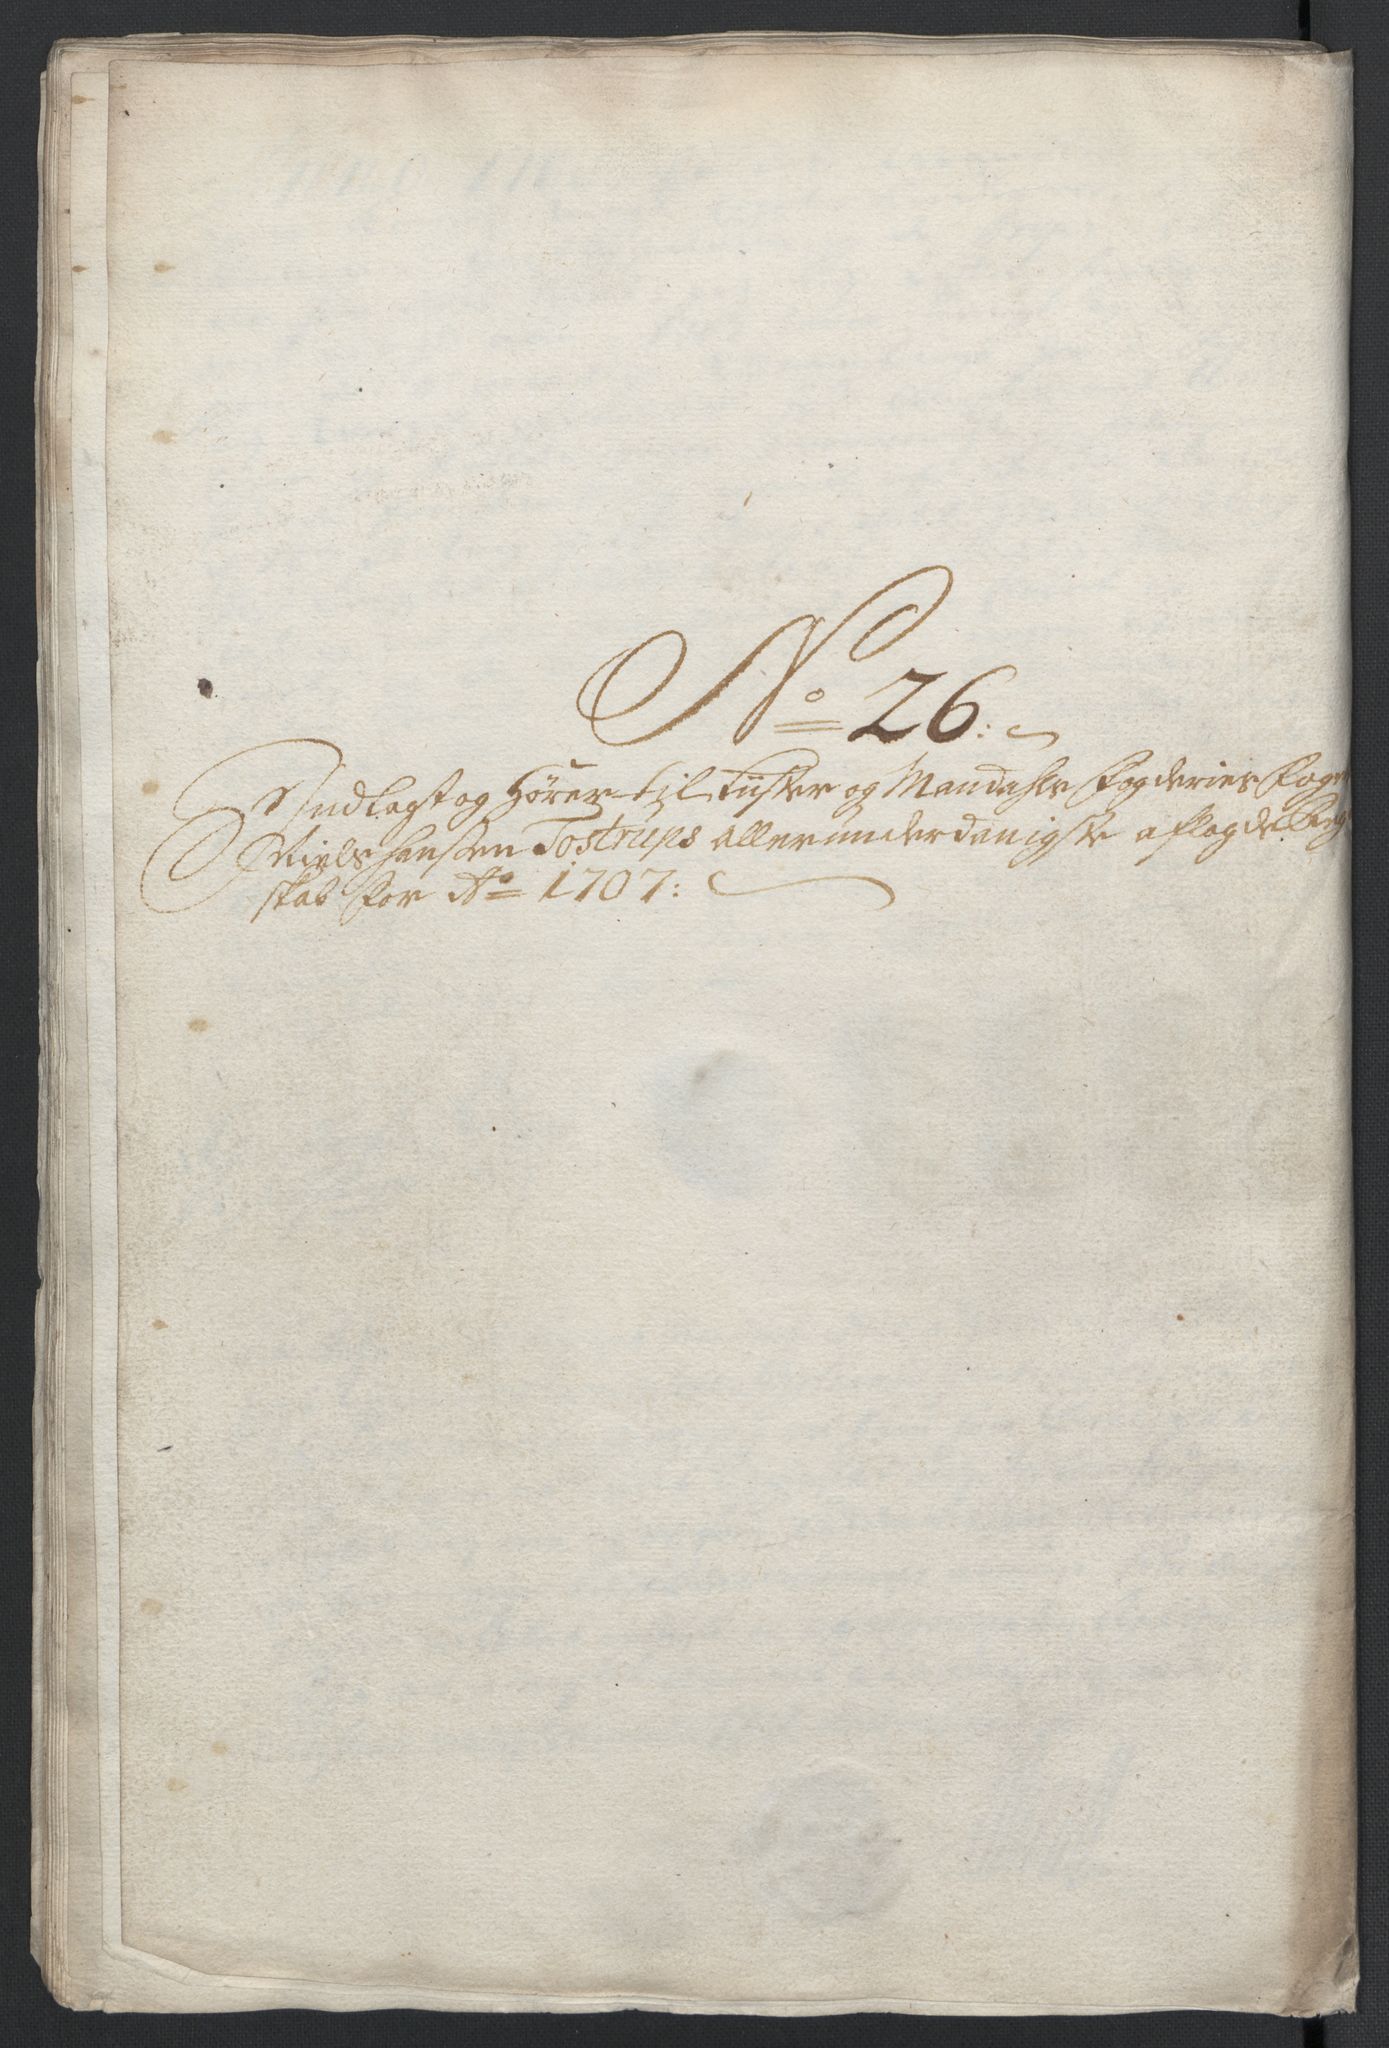 No 26:
Indlagt og Hörer til Lister og Mandahls Fogderies Foget
Niels Hanssen Tostrups allerunderdanigste aflagde Reg
skab for Ao 1707: